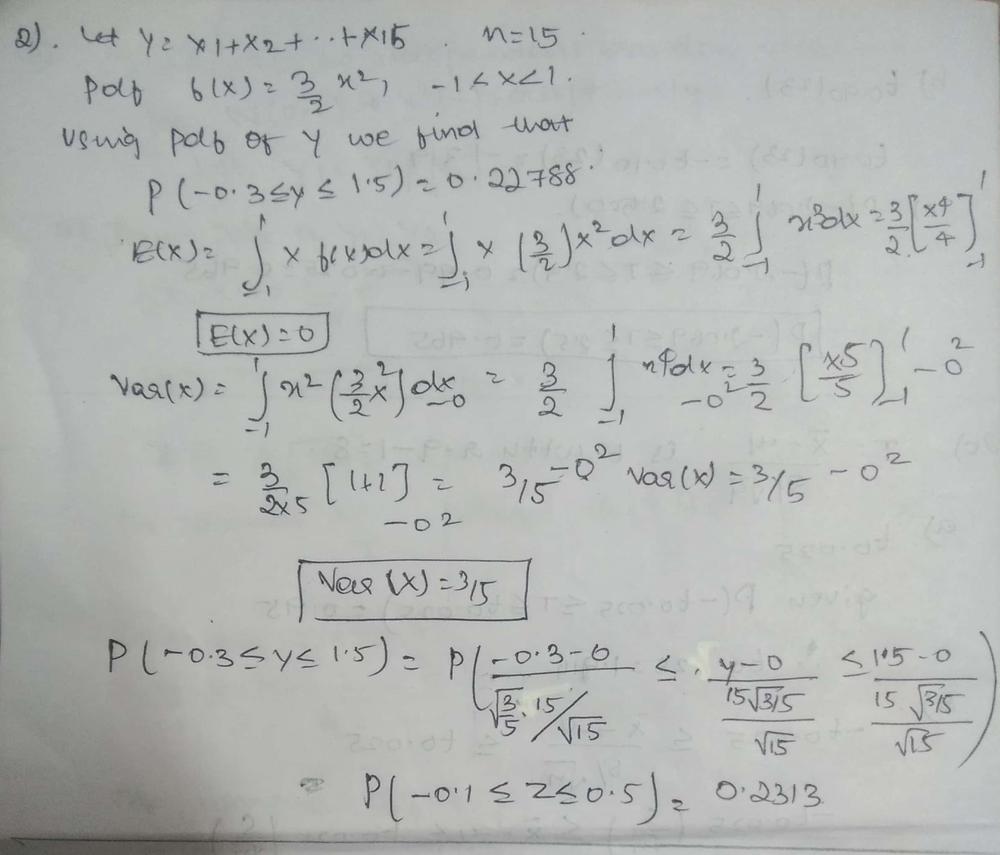 2). Let Y = X1+X2+...+X15. n=15.
Pdf f(x) = 3/2 x², -1 < x < 1.
Using Pdf of Y we find that
P(-0.3 ≤ Y ≤ 1.5) = 0.22788.
E(X) = ∫_{-1}^{1} x f(x) dx = ∫_{-1}^{1} x (3/2) x² dx = 3/2 ∫_{-1}^{1} x³ dx = 3/2 [x4/4]_{-1}^{1}
E(X) = 0
Var(X) = ∫_{-1}^{1} x² (3/2 x²) dx - 0 = 3/2 ∫_{-1}^{1} x⁴ dx - 0² = 3/2 [x5/5]_{-1}^{1} - 0²
= 3/2×5 [1+1] - 0² = 3/5 - 0² Var(X) = 3/5 - 0²
Var(X) = 3/5
P(-0.3 ≤ Y ≤ 1.5) = P( (-0.3-0)/(√(3/5) · 15/√15) ≤ (Y-0)/(15√(3/5)/√15) ≤ (1.5-0)/(15√(3/5)/√15) )
= P(-0.1 ≤ Z ≤ 0.5) = 0.2313